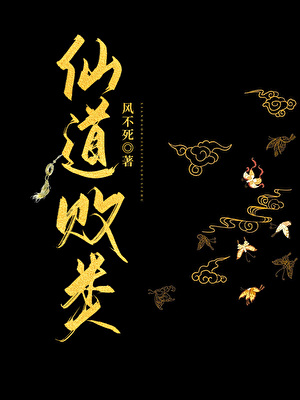 仙道败类
风不死◎著